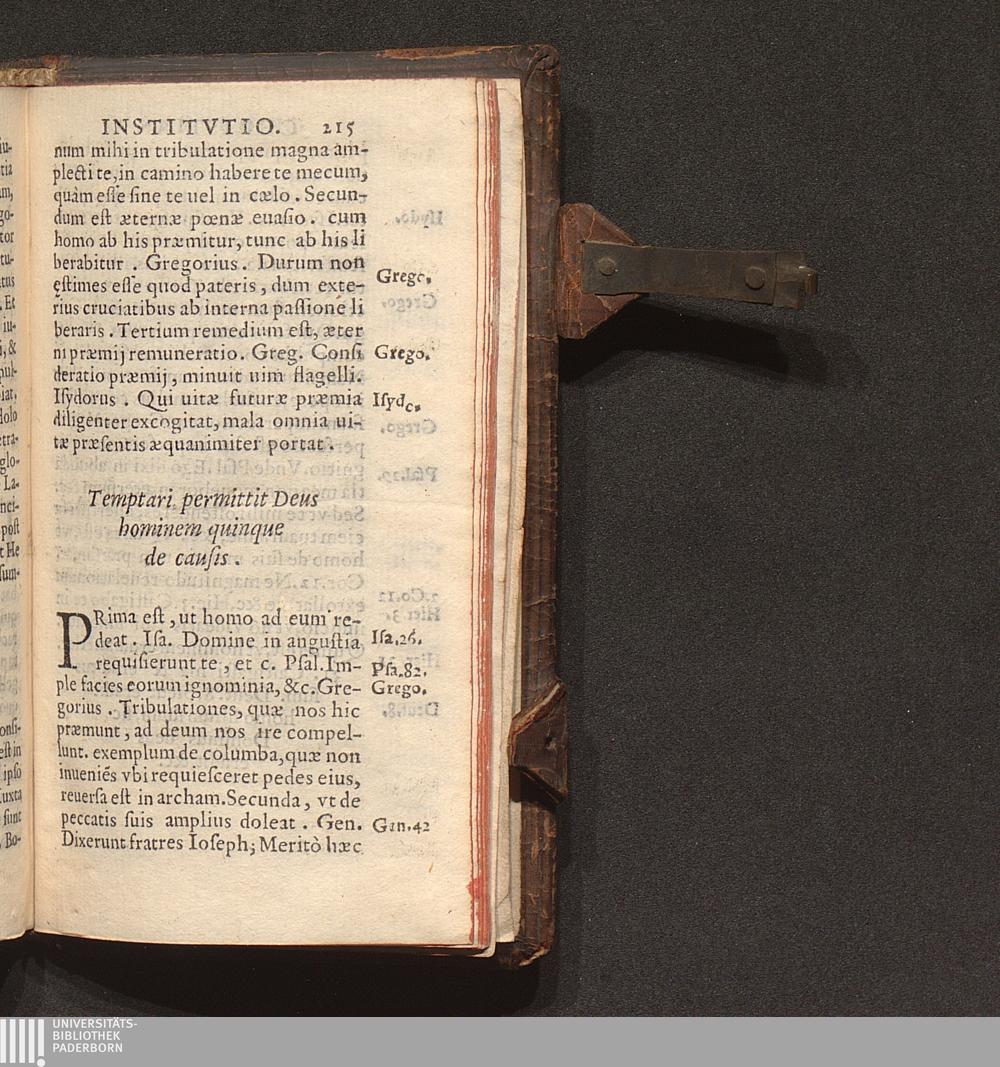 INSTITVTIO. 215
num mihi in tribulatione magna am-
plecti te, in camino habere te mecum,
quàm esse sine te uel in cælo. Secun-
dum est æternæ pœnæ euasio. cum
homo ab his præmitur, tunc ab his li
berabitur. Gregorius. Durum non
Grego.
ęstimes esse quod pateris, dum exte-
rius cruciatibus ab interna passione li
beraris. Tertium remedium est, æter
ni præmij remuneratio. Greg. Consi
Grego.
deratio præmij, minuit uim flagelli.
Isydorus. Qui uitæ futuræ præmia
Isydo.
diligenter excogitat, mala omnia ui-
tæ præsentis æquanimiter portat.
Temptari permittit Deus
hominem quinque
de causis.
PRima est, ut homo ad eum re-
deat. Isa. Domine in angustia
Isa.26.
requisierunt te, et c. Psal. Im-
Psa.82.
ple facies eorum ignominia, &c. Gre-
Grego.
gorius. Tribulationes, quæ nos hic
præmunt, ad deum nos ire compel-
lunt. exemplum de columba, quæ non
inueniẽs vbi requiesceret pedes eius,
reuersa est in archam. Secunda, vt de
peccatis suis amplius doleat. Gen.
Gen.42
Dixerunt fratres Ioseph; Meritò hæc
UNIVERSITÄTS-
BIBLIOTHEK
PADERBORN